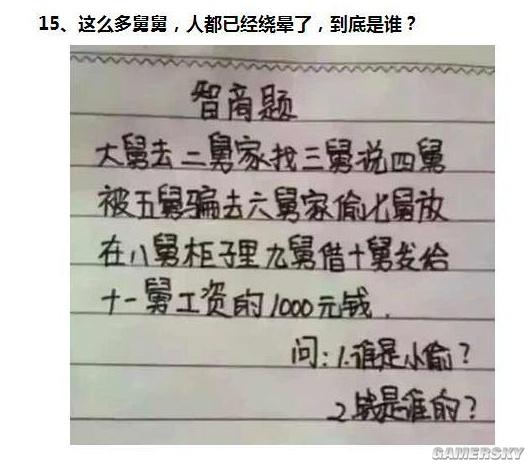 15、这么多舅舅，人都已经绕晕了，到底是谁？
智商题
大舅去二舅家找三舅说四舅
被五舅骗去六舅家偷七舅放
在八舅柜子里九舅借十舅发给
十一舅工资的1000元钱.
问:1.谁是小偷?
2.钱是谁的?
GAMERSKY